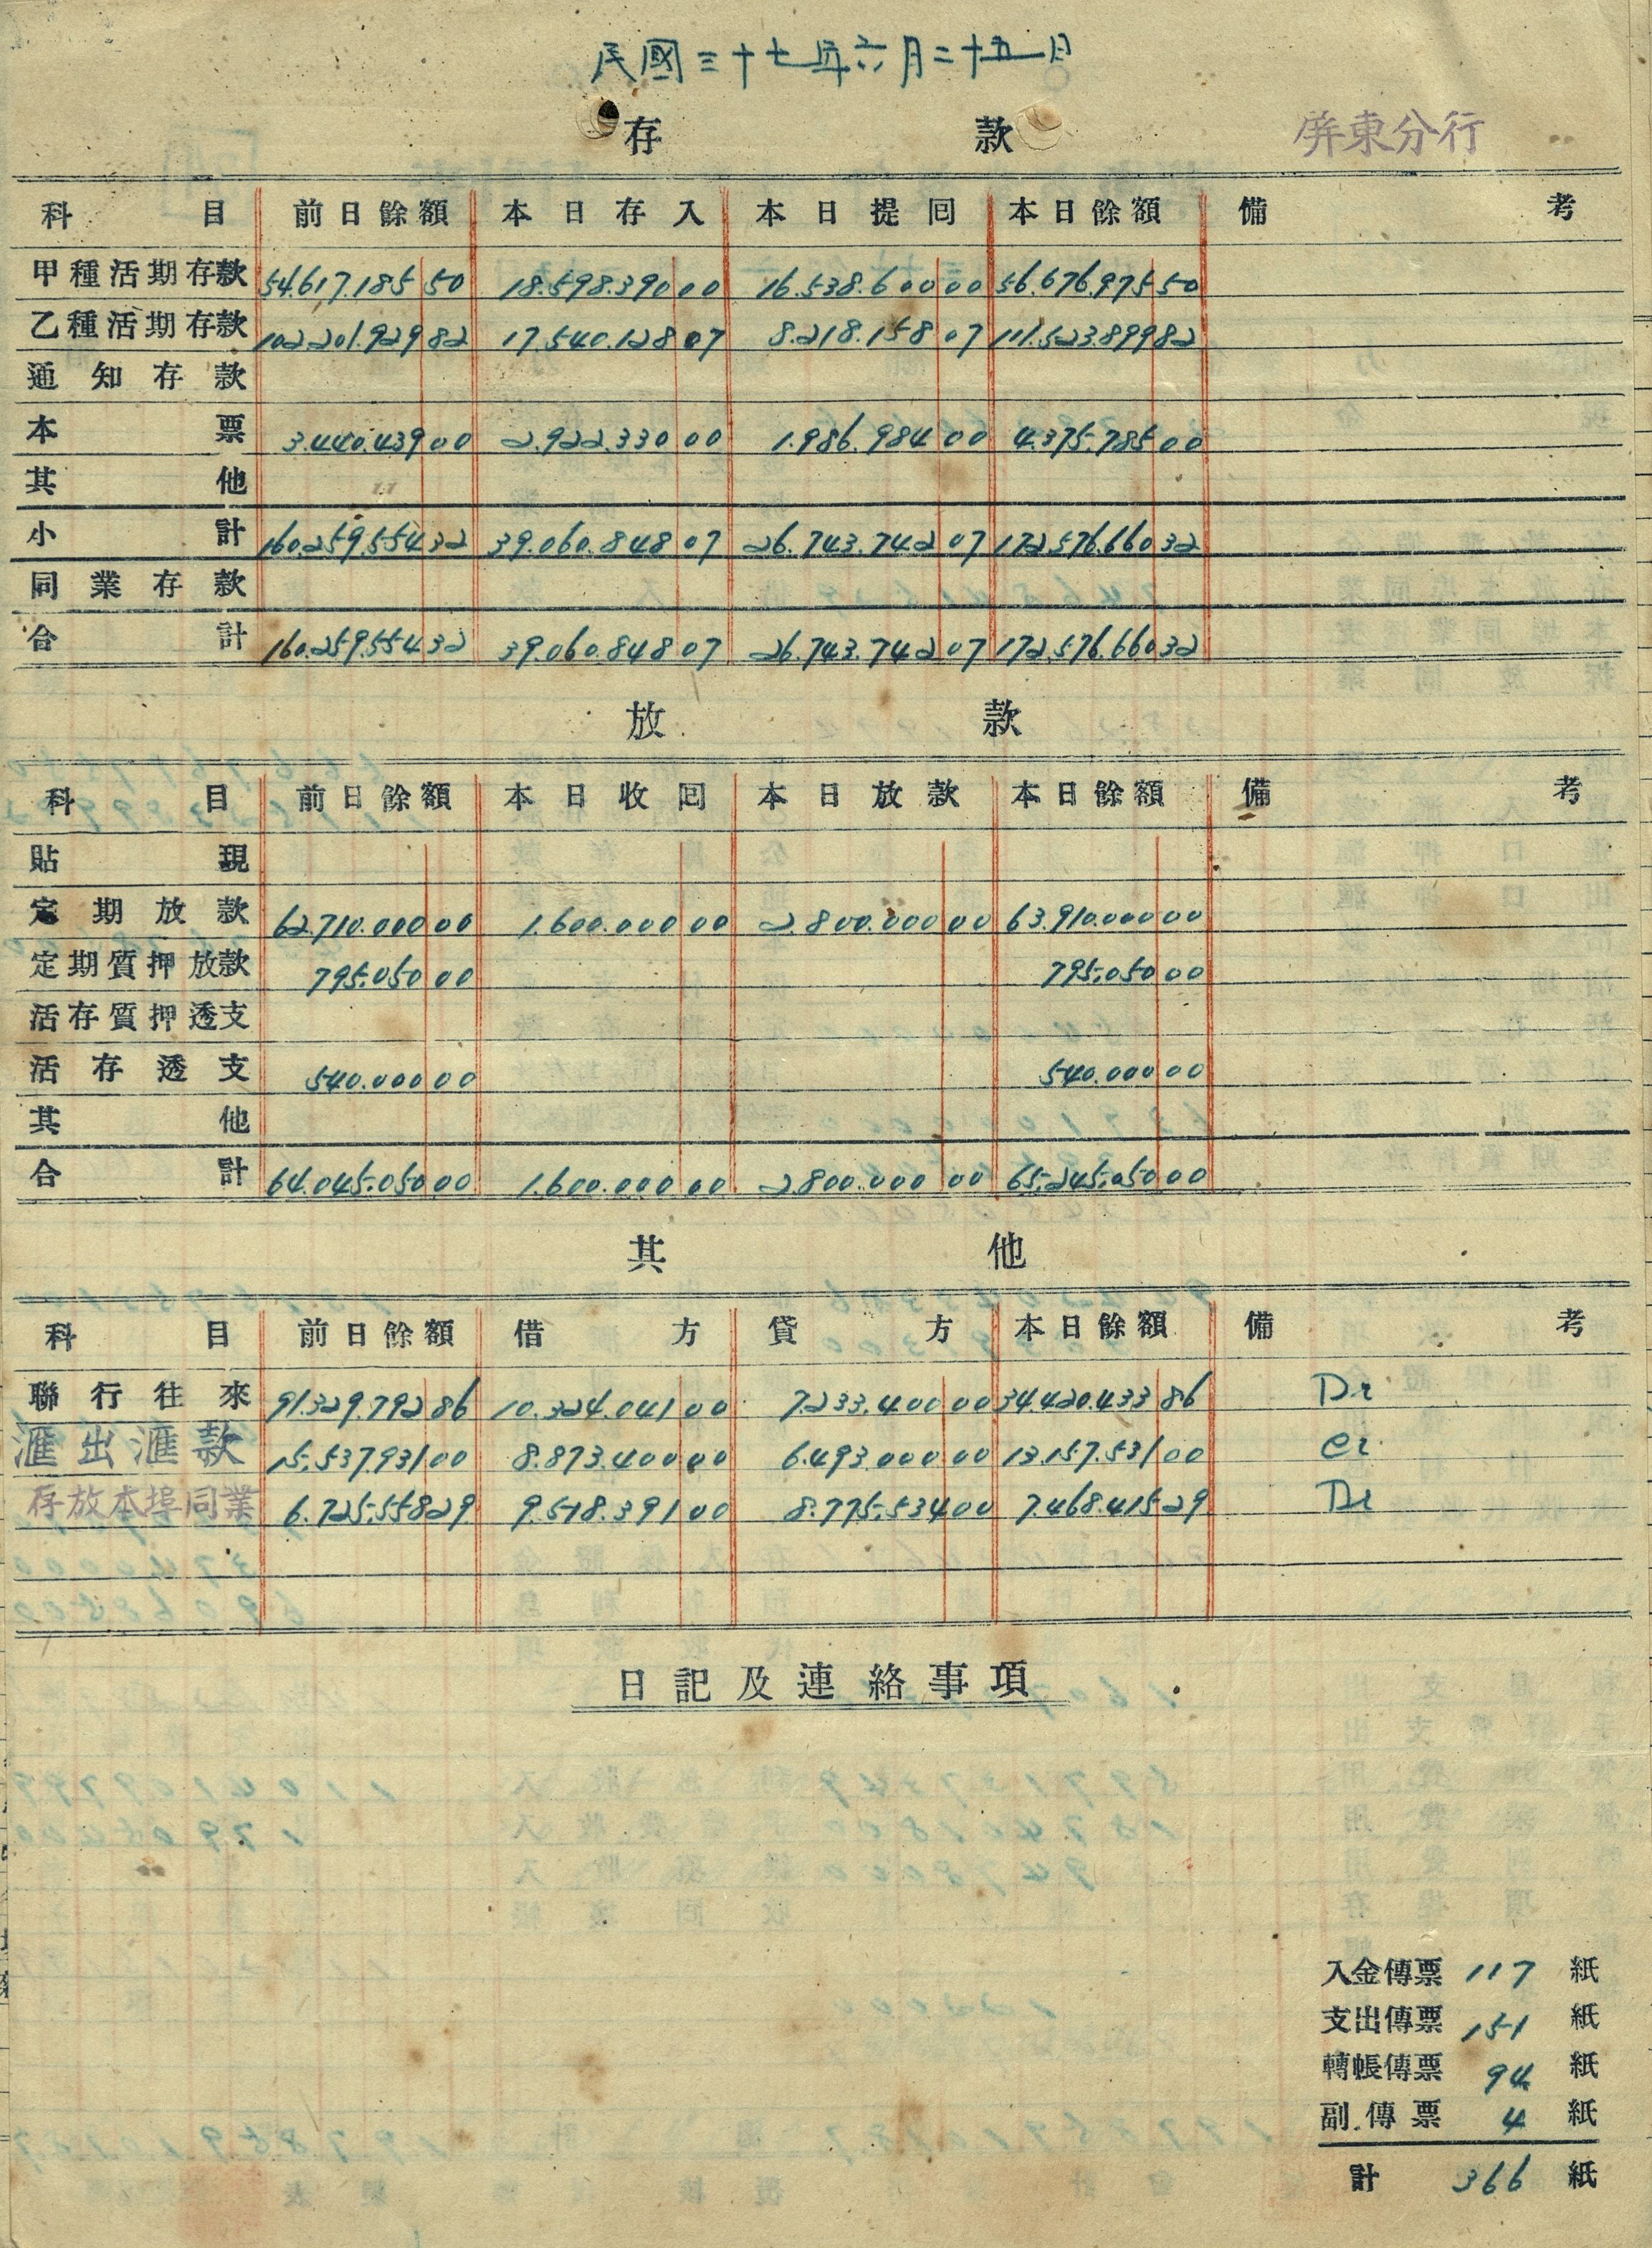 民國三十七年六月二十五日
存款
屏東分行
科目 前日餘額 本日存入 本日提回 本日餘額 備考
甲種活期存款 54.617.185 50 18.598.390 00 16.538.600 00 56.676.975 50
乙種活期存款 102.201.929 82 17.540.128 07 8.218.158 07 111.523.899 82
通知存款
本票 3.440.439 00 2.922.330 00 1.986.984 00 4.375.785 00
其他
小計 160.259.554 32 39.060.848 07 26.743.742 07 172.576.660 32
同業存款
合計 160.259.554 32 39.060.848 07 26.743.742 07 172.576.660 32
放款
科目 前日餘額 本日收回 本日放款 本日餘額 備考
貼現
定期放款 62.710.000 00 1.600.000 00 2.800.000 00 63.910.000 00
定期質押放款 795.050 00 795.050 00
活存質押透支
活存透支 540.000 00 540.000 00
其他
合計 64.045.050 00 1.600.000 00 2.800.000 00 65.245.050 00
其他
科目 前日餘額 借方 貸方 本日餘額 備考
聯行往來 91.329.792 86 10.324.041 00 7.233.400 00 94.420.433 86 Dr
滙出滙款 15.537.931 00 8.873.400 00 6.493.000 00 13.157.531 00 Cr
存放本埠同業 6.725.558 29 9.518.391 00 8.775.534 00 7.468.415 29 Dr
日記及連絡事項
入金傳票 117 紙
支出傳票 151 紙
轉帳傳票 94 紙
副傳票 4 紙
計 366 紙